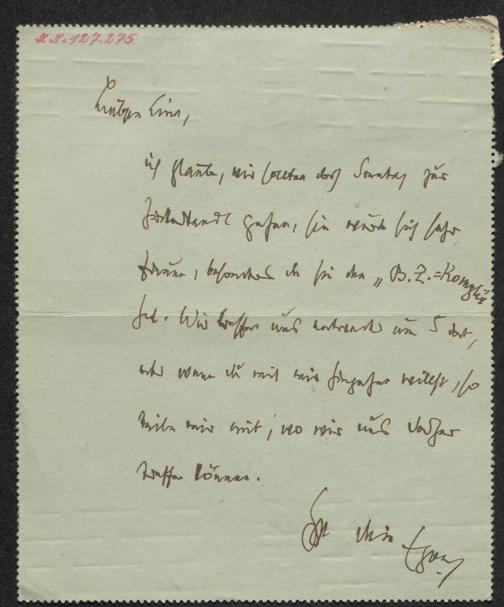 I.N. 127.275
ich glaube, wir sollten doch Sonntag zur
Zuckerkandl gehen, sie würde sich sehr
freuen, besonders da sie den „B.Z.=Komplex
hat. Wir treffen uns entweder um 5 dort,
oder wenn du mit mir hingehen willst, so
teile mir mit, wo wir uns vorher
treffen können.
dein Egon